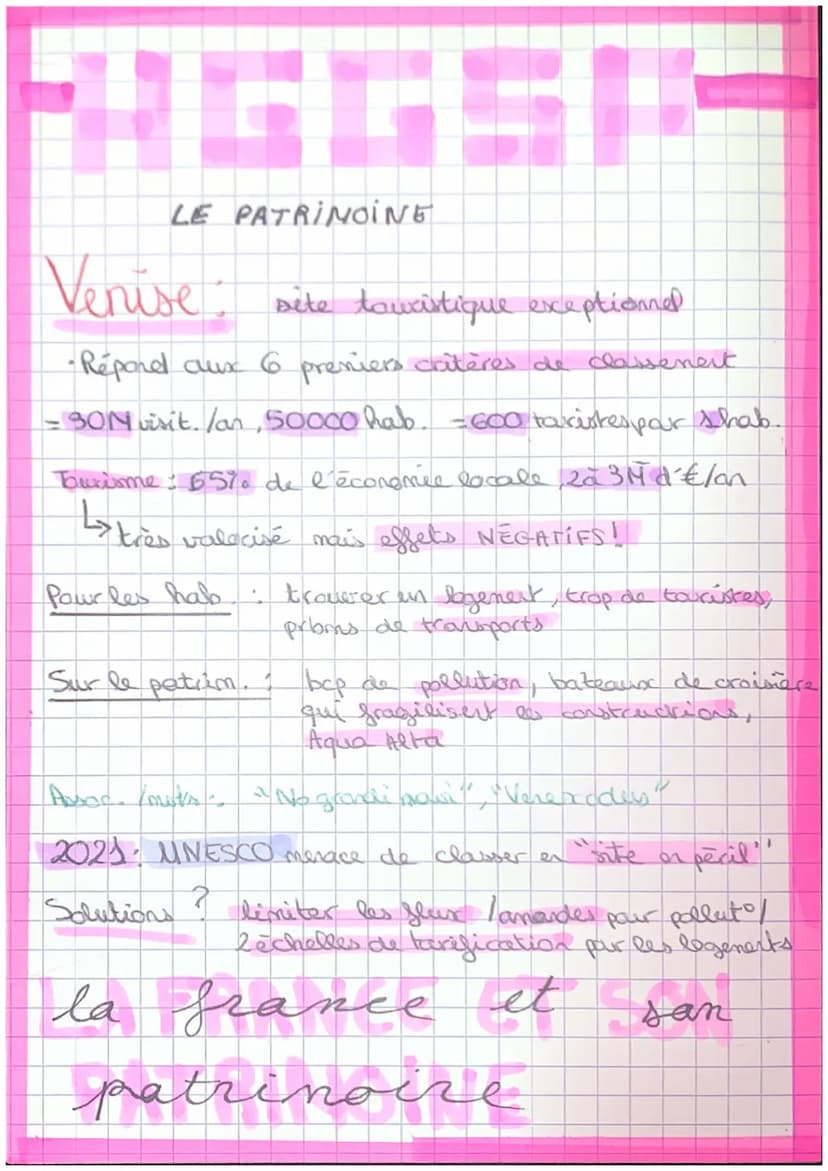 HGGSP
LE PATRIMOINE
Venise : site touristique exceptionnel
• Répond aux 6 premiers critères de classement
= 30M visit. /an, 50000 hab. = 600 touristes par 1 hab.
Tourisme : 65% de l'économie locale, 2 à 3M d'€/an
↳ très valorisé mais effets NÉGATIFS !
Pour les hab. : trouver un logement, trop de touristes,
prbms de transports
Sur le patrim. : bcp de pollution, bateaux de croisière
qui fragilisent les constructions,
Aqua Alta
Assoc. /mvts : "No grandi navi", "Venexodus"
2021 : UNESCO menace de classer en "site en péril"
Solutions ? limiter les flux / amandes pour polluto /
2 échelles de tarification pour les logements
LA FRANCE ET SON
la france et son
PATRIMOINE
patrimoine